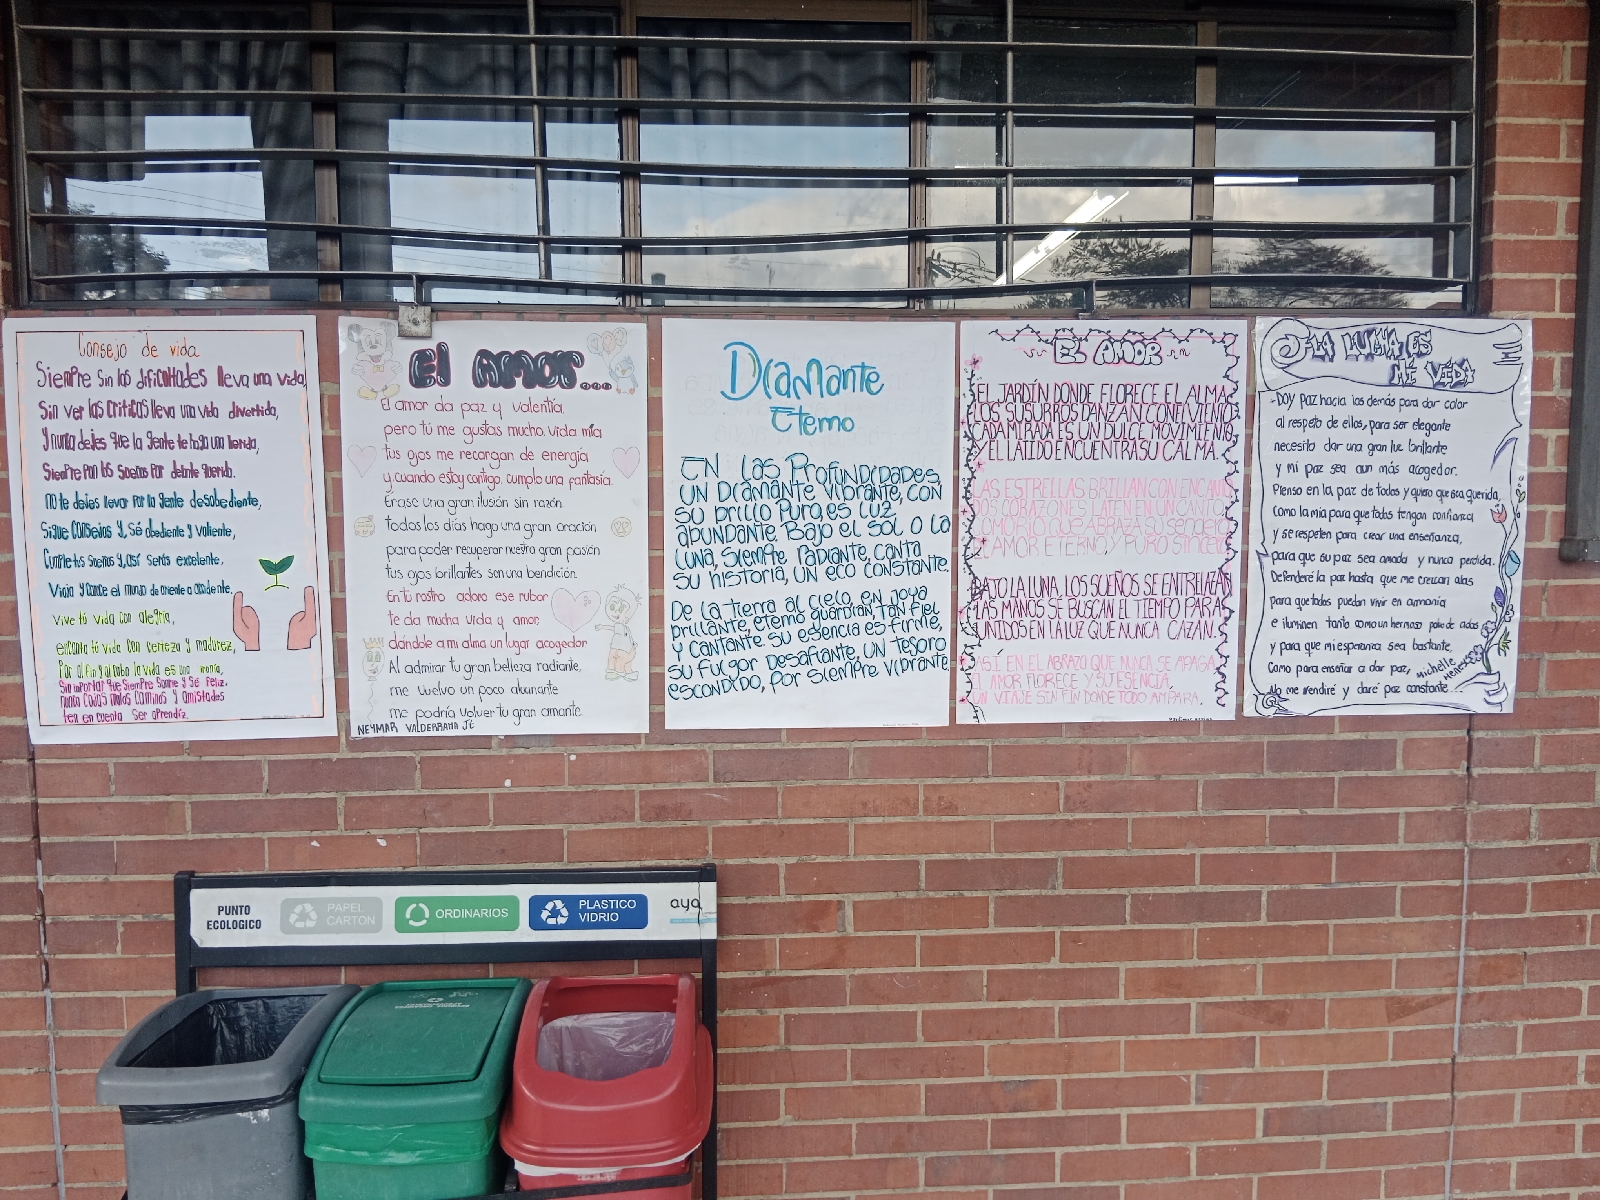 Consejo de vida
Siempre sin las dificultades lleva una vida,
Sin ver las criticas lleva una vida divertida,
Y nunca dejes que la gente te haga una herida,
Siempre pon los sueños por delante querido.
No te dejes llevar por la gente desobediente,
Sigue consejos y, sé obediente y valiente,
Cumple tus sueños y, así serás excelente,
Viaja y conoce el mundo de oriente a occidente.
Vive tú vida con alegría,
encanta tú vida con certeza y madurez,
Por al fin y al cabo la vida es una ironía,
Sin importar que siempre sonríe y sé feliz,
nunca cojas malos caminos y amistades
ten en cuenta ser aprendiz.
El AMOR...
el amor da paz y valentía,
pero tú me gustas mucho, vida mía
tus ojos me recargan de energía
y cuando estoy contigo, cumplo una fantasía.
Érase una gran ilusión sin razón
todos los días hago una gran oración
para poder recuperar nuestra gran pasión
tus ojos brillantes son una bendición.
En tú rostro adoro ese rubor
te da mucha vida y amor,
dándole a mi alma un lugar acogedor
Al admirar tu gran belleza radiante,
me vuelvo un poco abunante
me podría volver tu gran amante.
NEYMAR VALDERRAMA JT
Diamante
Eterno
En las profundidades,
un diamante vibrante, con
su brillo puro, es luz
abundante. Bajo el sol o la
luna, siempre radiante, canta
su historia, un eco constante.
De la tierra al cielo, en joya
brillante, eterno guardián, tan fiel
y cantante. Su esencia es firme,
su fulgor desafiante, un tesoro
escondido, por siempre vibrante.
EL AMOR
EL JARDÍN DONDE FLORECE EL ALMA,
LOS SUSURROS DANZAN CON EL VIENTO,
CADA MIRADA ES UN DULCE MOVIMIENTO,
EL LATIDO ENCUENTRA SU CALMA.
LAS ESTRELLAS BRILLAN CON ENCANTO
DOS CORAZONES LATEN EN UN CANTO,
COMO UN ABRAZO
AMOR ETERNO, Y PURO SINCERO
BAJO LA LUNA, LOS SUEÑOS SE ENTRELAZAN
LAS MANOS SE BUSCAN EL TIEMPO PARA
UNIDOS EN LA LUZ QUE NUNCA CAZAN.
ASÍ EN EL ABRAZO QUE NUNCA SE APAGA,
EL AMOR FLORECE Y SU ESENCIA,
UN VIAJE SIN FIN DONDE TODO AMPARA.
LA LUCHA ES
MI VIDA
-DOY paz hacia los demás para dar calor
al respeto de ellos, para ser elegante
necesito dar una gran luz brillante
y mi paz sea aun más acogedor.
Pienso en la paz de todos y quiero que sea querida,
Como la mia para que todos tengan confianza
y se respeten para crear una enseñanza,
para que su paz sea amada y nunca perdida.
Defenderé la paz hasta que me crezcan alas
para que todos puedan vivir en armonía
e iluminen tanto como un hermoso palo de adas
y para que mi esperanza sea bastante,
Como para enseñar a dar paz,
No me rendiré y daré paz constante
Michelle Meneses
PUNTO
ECOLOGICO
PAPEL
CARTON
ORDINARIOS
PLASTICO
VIDRIO
aya